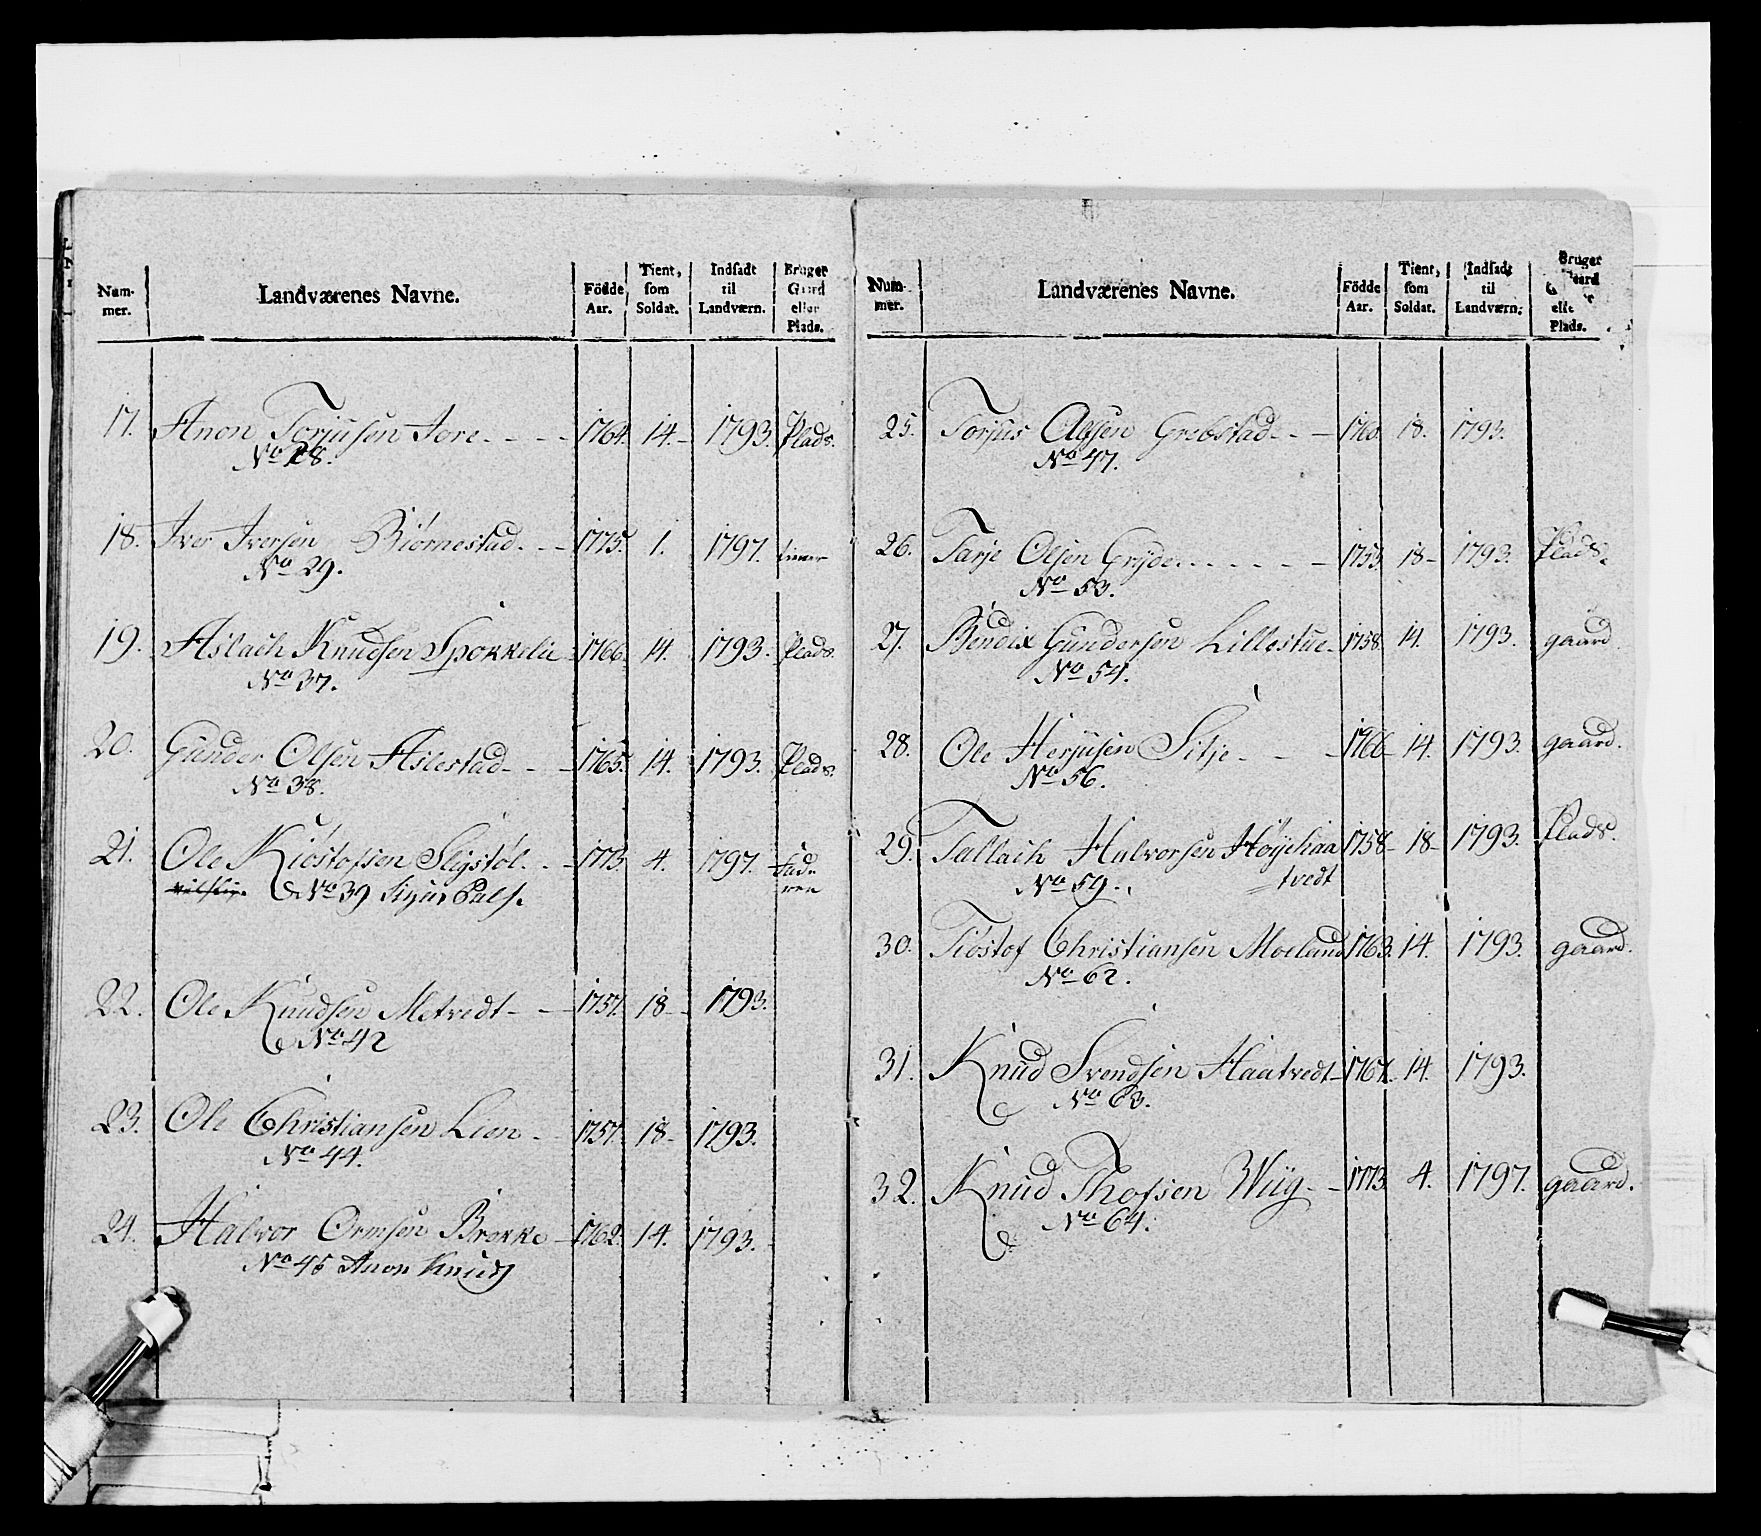 Num-mer. Landværenes Navne. Födde Aar. Tient, som Soldat. Indsadt til Landværn. Bruger Gaard eller Plads.
17. Anon Torjusen Jore 1764. 14. 1793. Plads.
No 28.
18. Iver Iversen Biørnestad 1775. 1. 1797. tiener
No 29.
19. Aslach Knudsen Spokkelie 1766. 14. 1793. Plads.
No 37.
20. Gunder Olsen Aslestad 1765. 14. 1793. Plads.
No 38.
21. Ole Kiøstofsen Sligstøl 1773. 4. 1797.
No 39
22. Ole Knudsen Motvedt 1757. 18 1793.
No 42
23. Ole Christiansen Lien 1757. 18 1793.
No 44.
24. Halvor Ormsen Brokke 1762. 14. 1793.
No 45 Anon Knuds
Num-mer. Landværenes Navne. Födde Aar. Tient, som Soldat. Indsadt til Landværn. Bruger Gaard eller Plads.
25. Torjus Agsen Grebstad 1760. 18. 1793.
No 47.
26. Tarje Olsen Gryde 1753. 18 1793. Plads.
No 53.
27. Bendix Gundersen Lillestue 1758. 14. 1793. gaard.
No 54.
28. Ole Herjusen Sitje 1766 14. 1793. gaard.
No 56.
29. Tallach Halvorsen Høyekaa 1758 18 1793. Plads.
No 59. tvedt
30. Tiøstof Christiansen Moeland 1763. 14. 1793. gaard.
No 62.
31. Knud Svendsen Haatvedt 1767. 14. 1793.
No 63.
32. Knud Thofsen Wiig 1773. 4. 1797. gaard.
No 64.